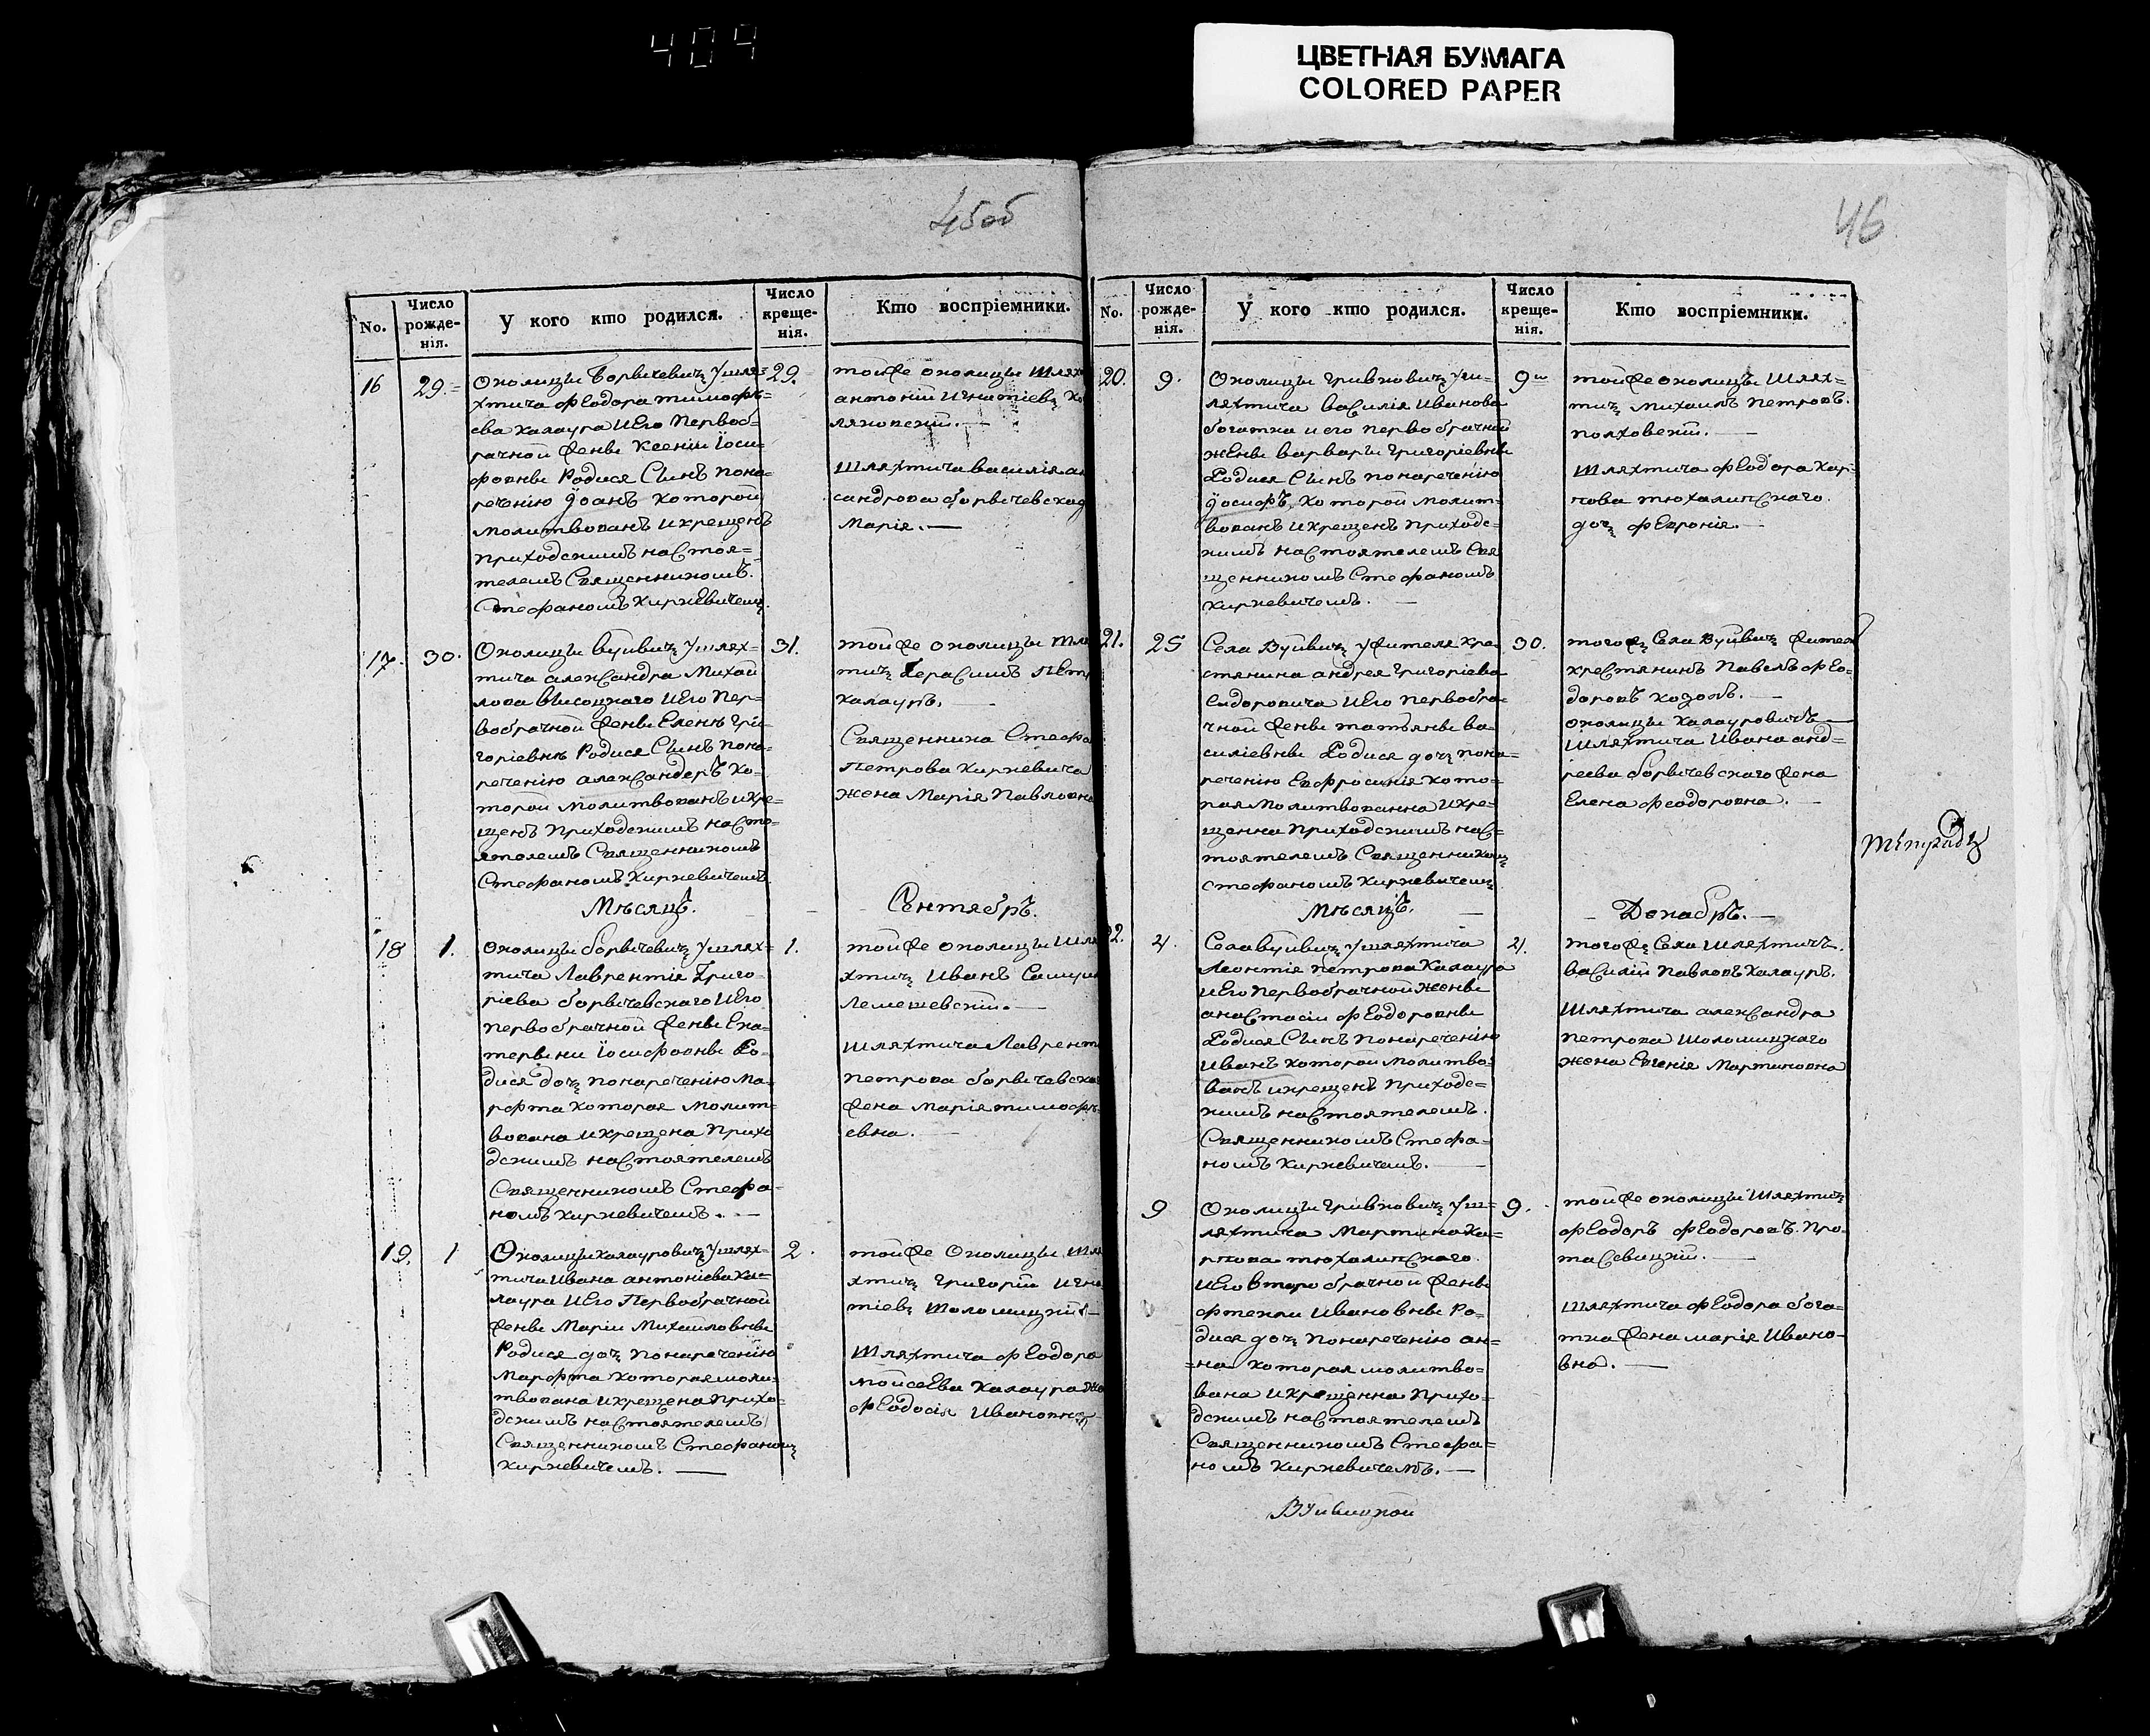 404
ЦВЕТНАЯ БУМАГА
COLORED PAPER
45об
46
No.
Число рожде-нія.
У кого кто родился.
Число креще-нія.
Кто воспріемники.
16
29.
Околицы Борвичевичъ у шля=
хтича Феодора Тимофѣ=
ева Калаура и его первоб=
рачной женѣ Ксеніи Іоси=
фовнѣ родися сынъ по на=
реченію Іоанъ которой
молитвованъ и крещенъ
приходскимъ настоя=
телемъ священникомъ.
Стефаномъ Кирневичемъ.
29.
той же околицы шлях
Антоній Игнатіевъ
ляховскій.
Шляхтича Василія
сандрова Борвичевска
Марія.
17.
30.
Околицы Вуивичъ у шлях=
тича Александра Михай
лова Висоцкаго и его пер=
вобрачной женѣ Еленѣ Гри=
горіевнѣ родися сынъ пона=
реченію Александеръ ко=
торой молитвованъ и кре=
щенъ приходскимъ насто=
ятелемъ священникомъ
Стефаномъ Кирневичемъ.
31.
той же околицы
тичъ Герасимъ Петр
Калауръ.
Священника Стефа
Петрова Кирневича
жена Марія Павловна
Мѣсяцъ. Сентябрь.
18
1.
Околицы Борвичевичъ у шлях=
тича Лаврентія Григо=
ріева Борвичевскаго и его
первобрачной женѣ Ека=
терѣни Іосифовнѣ ро=
дися дочъ по нареченію Ма=
рфта которая молит=
вована и крещена прихо
дскимъ настоятелемъ
священникомъ Стефа=
номъ Кирневичемъ.
1.
той же околицы
хтичъ Иванъ
Лемешевскій.
Шляхтича Лаврент
Петрова Борвичевска
жена Марія Тимофѣ=
евна.
19.
1
Околицы Калауровичъ у шлях=
тича Ивана Антоніева Ка=
лаура и его первобрачной
женѣ Маріи Михайловнѣ
родися дочъ по нареченію
Марфта которая моли=
твована и крещена прихо=
дскимъ настоятелемъ
священникомъ Стефаномъ
Кирневичемъ.
2.
той же околицы
хтичъ Григорій Игна
тіевъ Шоломицкій
Шляхтича Феодора
Мойсеева Калаура
Феодосія Ивановна
No.
Число рожде-нія.
У кого кто родился.
Число креще-нія.
Кто воспріемники.
20.
9.
Околицы Гривковичъ у ш=
ляхтича Василія Иванова
Богатка и его первобрачной
женѣ Варвары Григоріевнѣ
родися сынъ по нареченію
Іосифъ, которой молит=
вованъ и крещенъ приходс=
кимъ настоятелемъ свя
щенникомъ Стефаномъ
Кирневичемъ.
9
той же околицѣ шлях=
тичъ Михаилъ Петровъ.
Полховскій.
Шляхтича Феодора Кар=
пова Тюхалипскаго.
дочъ Февронія.
21.
25
Села Вуйвичъ у жителя кре
стянина Андрея Григоріева
Сидоровича и его первобра=
чной женѣ Татьянѣ Ва=
силіевнѣ родися дочъ пона=
реченію Евфросинія кото=
рая молитвованна и кре=
щенна приходскимъ нас=
тоятелемъ священникомъ
Стефаномъ Кирневичемъ
30.
того жъ села Вуйвичъ житель
крестянинъ Павелъ Фео=
доровъ Ходонъ.
околицы Калауровичъ
Шляхтича Ивана Анд=
реева Борвичевскаго жена
Елена Феодоровна.
Мѣсяцъ. Декабръ.
22.
4.
Села Вуйвичъ у шляхтича
Леонтія Петрова Калаура
и его первобрачной женѣ
Анастасіи Феодоровнѣ
родися сынъ по нареченію
Иванъ которой молитво=
ванъ и крещенъ приходс=
кимъ настоятелемъ.
священникомъ Стефа=
номъ Кирневичемъ.
4.
того жъ села шляхтичъ.
Василій Павловъ Калауръ.
Шляхтича Александра
Петрова Шоломицкаго
жена Евгенія Мартиновна
9
Околицы Гривковичъ у ш=
ляхтича Мартина Ка=
рпова Тюхалипскаго.
и его второбрачной женѣ
Фтекли Ивановнѣ ро=
дися дочъ по нареченію Ан=
=на которая молитво=
вана и крещенна прихо=
дскимъ настоятелемъ
священникомъ Стефа=
номъ Кирневичемъ.
9.
той же околицы шляхтичъ
Феодоръ Феодоровъ. Про=
тасевицкій.
Шляхтича Феодора Бога=
тка жена Марія Ивано=
вна.
Вуивицкой